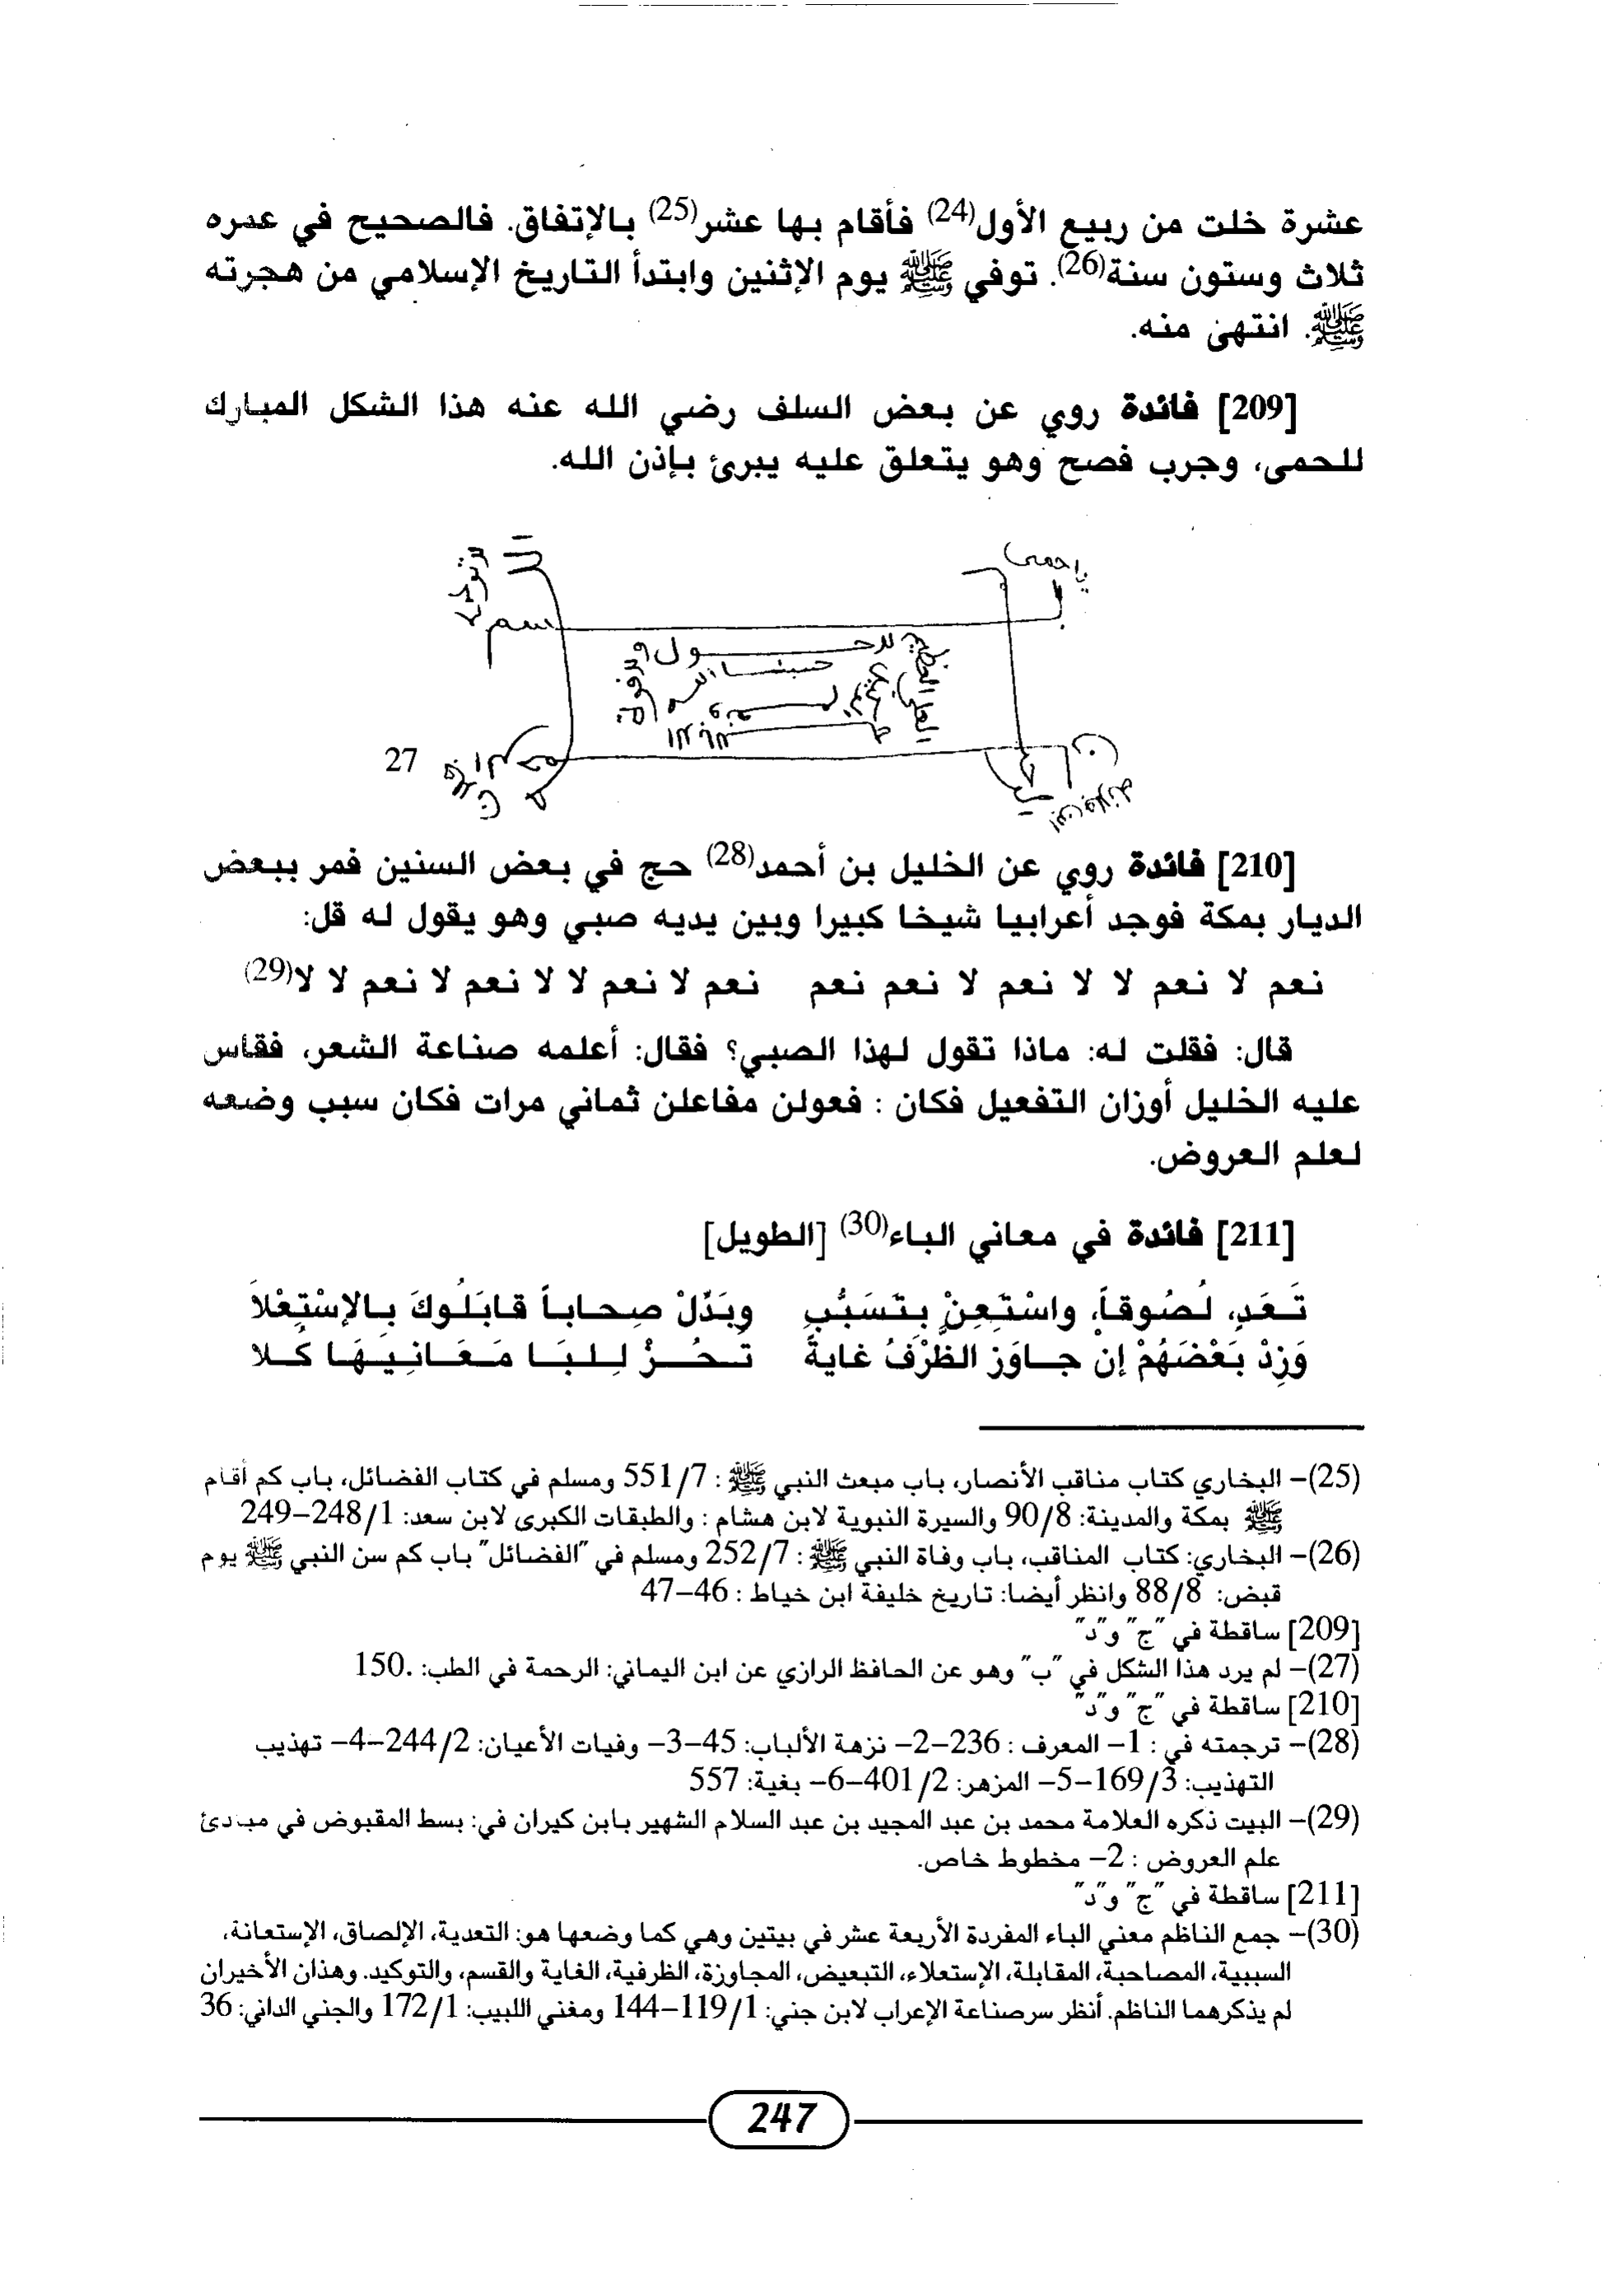 عشرة خلت من ربيع الأول(24) فأقام بها عشر(25) بالإتفاق. فالصحيح في عمره
ثلاث وستون سنة(26). توفي ﷺ يوم الإثنين وابتدأ التاريخ الإسلامي من هجرته
ﷺ. انتهى منه.
[209] فائدة روي عن بعض السلف رضي الله عنه هذا الشكل المبارك
للحمى، وجرب فصح وهو يتعلق عليه يبرئ بإذن الله.
27
[210] فائدة روي عن الخليل بن أحمد(28) حج في بعض السنين فمر ببعض
الديار بمكة فوجد أعرابيا شيخا كبيرا وبين يديه صبي وهو يقول له قل:
نعم لا نعم لا لا نعم لا نعم نعم    نعم لا نعم لا لا نعم لا نعم لا لا(29)
قال: فقلت له: ماذا تقول لهذا الصبي؟ فقال: أعلمه صناعة الشعر، فقاس
عليه الخليل أوزان التفعيل فكان : فعولن مفاعلن ثماني مرات فكان سبب وضعه
لعلم العروض.
[211] فائدة في معاني الباء(30) [الطويل]
تَعَدِ، لُصُوقاً، واسْتَعِنْ بِتَسَبُّبِ    وبَدِّلْ صِحاباً قابَلُوكَ بالإسْتِعْلاَ
وَزِدْ بَعْضَهُمْ إنْ جاوَز الظَّرْفُ غايةً    تَحُزْ لِلبَا مَعَانِيَهَا كُلا
(25)– البخاري كتاب مناقب الأنصار، باب مبعث النبي ﷺ : 551/7 ومسلم في كتاب الفضائل، باب كم أقام
ﷺ بمكة والمدينة: 90/8 والسيرة النبوية لابن هشام : والطبقات الكبرى لابن سعد: 248/1–249
(26)– البخاري: كتاب المناقب، باب وفاة النبي ﷺ : 252/7 ومسلم في "الفضائل" باب كم سن النبي ﷺ يوم
قبض: 88/8 وانظر أيضا: تاريخ خليفة ابن خياط : 46–47
[209] ساقطة في "ج" و"د"
(27)– لم يرد هذا الشكل في "ب" وهو عن الحافظ الرازي عن ابن اليماني: الرحمة في الطب: .150
[210] ساقطة في "ج" و"د"
(28)– ترجمته في : 1– المعرف : 236–2– نزهة الألباب: 45–3– وفيات الأعيان: 244/2–4– تهذيب
التهذيب: 169/3–5– المزهر: 401/2–6– بغية: 557
(29)– البيت ذكره العلامة محمد بن عبد المجيد بن عبد السلام الشهير بابن كيران في: بسط المقبوض في مبادئ
علم العروض : 2– مخطوط خاص.
[211] ساقطة في "ج" و"د"
(30)– جمع الناظم معني الباء المفردة الأربعة عشر في بيتين وهي كما وضعها هو: التعدية، الإلصاق، الإستعانة،
السببية، المصاحبة، المقابلة، الإستعلاء، التبعيض، المجاوزة، الظرفية، الغاية والقسم، والتوكيد. وهذان الأخيران
لم يذكرهما الناظم. أنظر سر صناعة الإعراب لابن جني: 119/1–144 ومغني اللبيب: 172/1 والجني الداني: 36
247